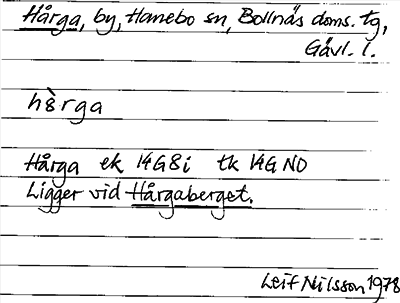 Hårga, by, Hanebo sn, Bollnäs doms. tg,
Gävl. l.
hèrga
Hårga ek 14G8i tk 14G NO
Ligger vid Hårgaberget.
Leif Nilsson 1978